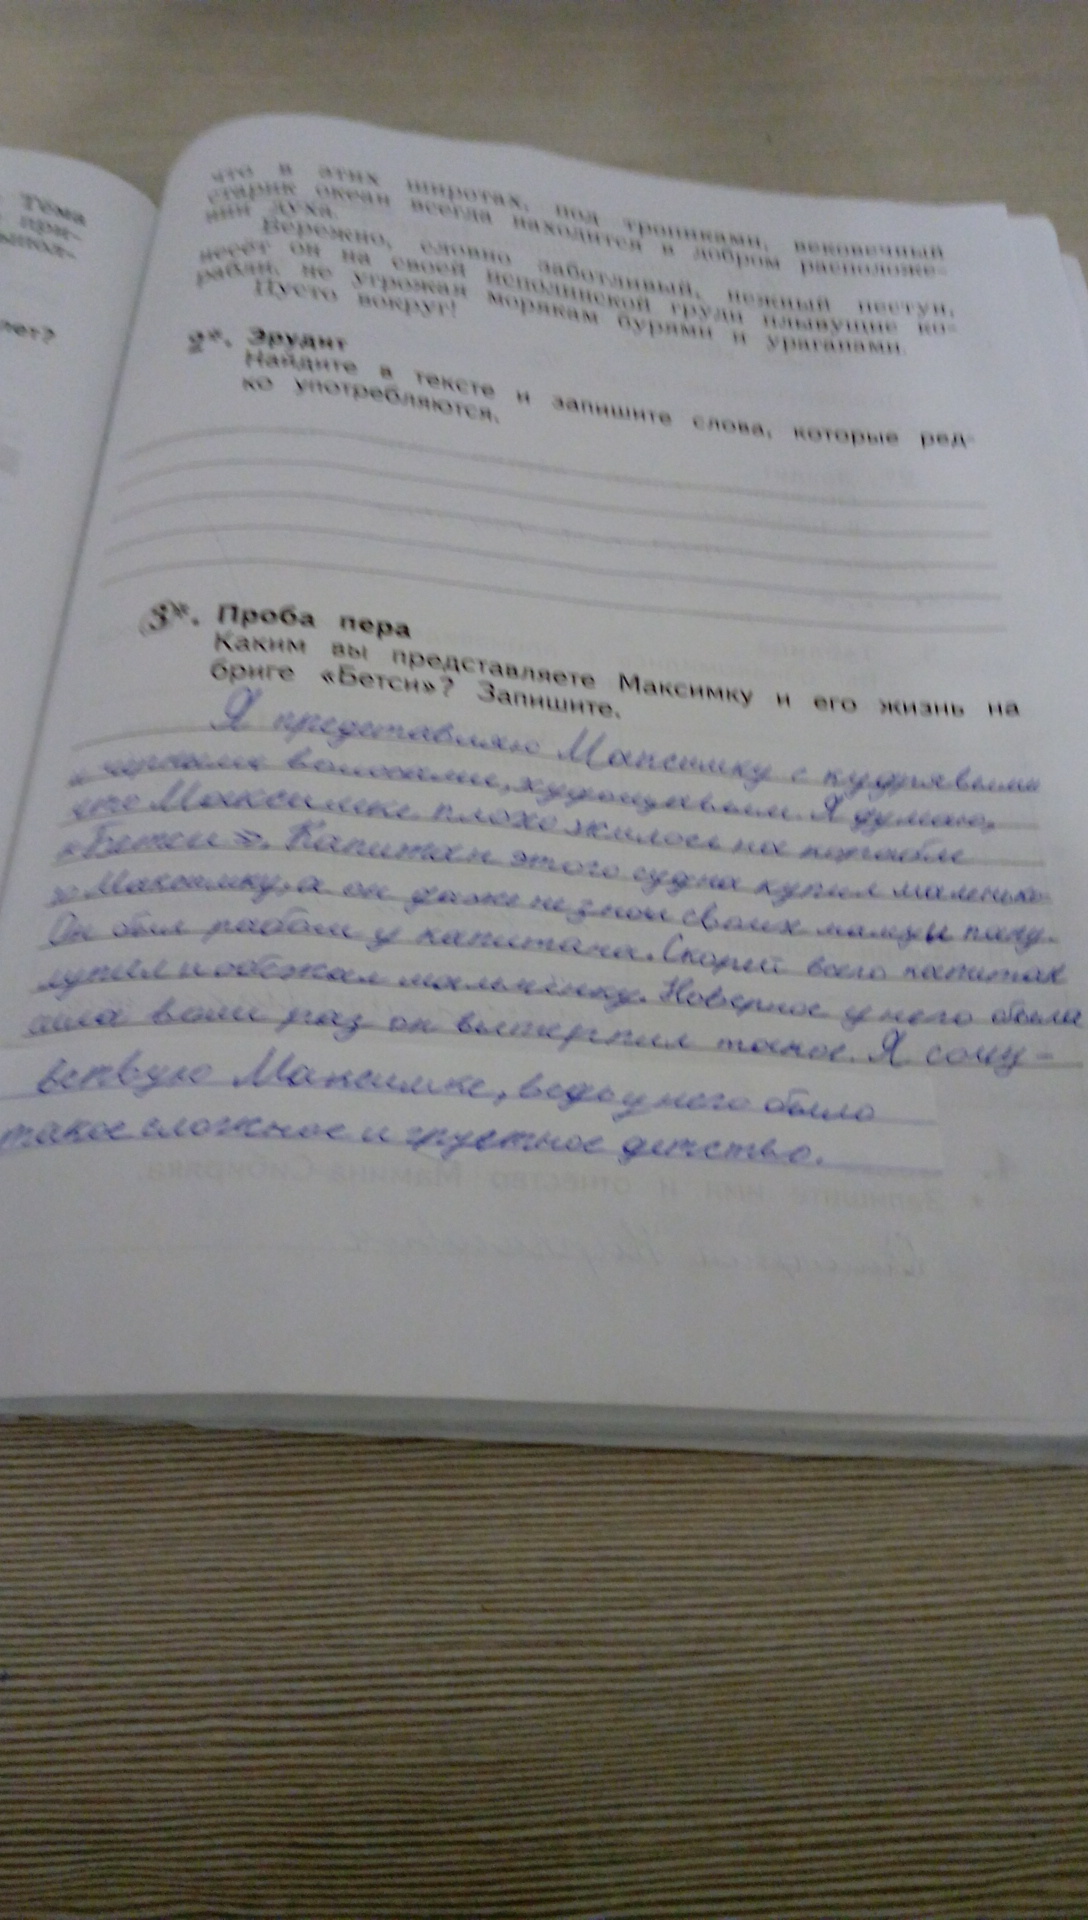 Тёма
при-
лет?
что в этих широтах, под тропиками, вековечный
старик океан всегда находится в добром расположе-
нии духа.
Бережно, словно заботливый, нежный пестун,
несёт он на своей исполинской груди плывущие ко-
рабли, не угрожая морякам бурями и ураганами.
Пусто вокруг!
2*. Эрудит
Найдите в тексте и запишите слова, которые ред-
ко употребляются.
3*. Проба пера
Каким вы представляете Максимку и его жизнь на
бриге «Бетси»? Запишите.
Я представляю Максимку с кудрявыми
и чёрными волосами, худощавым. Я думаю,
что Максимке плохо жилось на корабле
«Бетси». Капитан этого судна купил маленько-
го Максимку, а он даже не знал своих маму и папу.
Он был рабом у капитана. Скорей всего капитан
лупил и обежал мальчинку. Наверное у него были
сила воли раз он вытерпил такое. Я сочу-
вствую Максимке, ведь у него было
такое сложное и грустное детство.
4.
Запишите имя и отчество Мамина-Сибиряка.